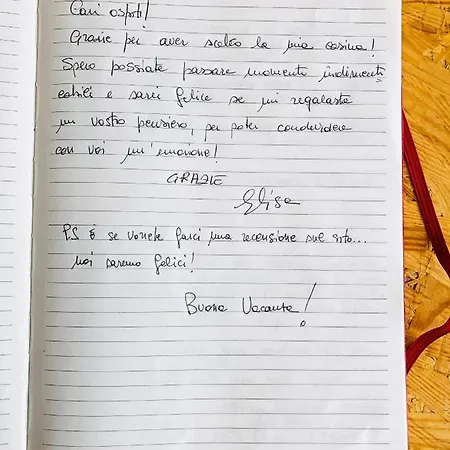 Cari ospiti!
Grazie per aver scelto la mia casina!
Spero possiate passare momenti indimenti
cabili e sarei felice se mi regalaste
un vostro pensiero, per poter condividere
con voi un'emozione!
GRAZIE
Elisa
P.S e se vorrete farci una recensione sul sito...
noi saremo felici!
Buona Vacanza!